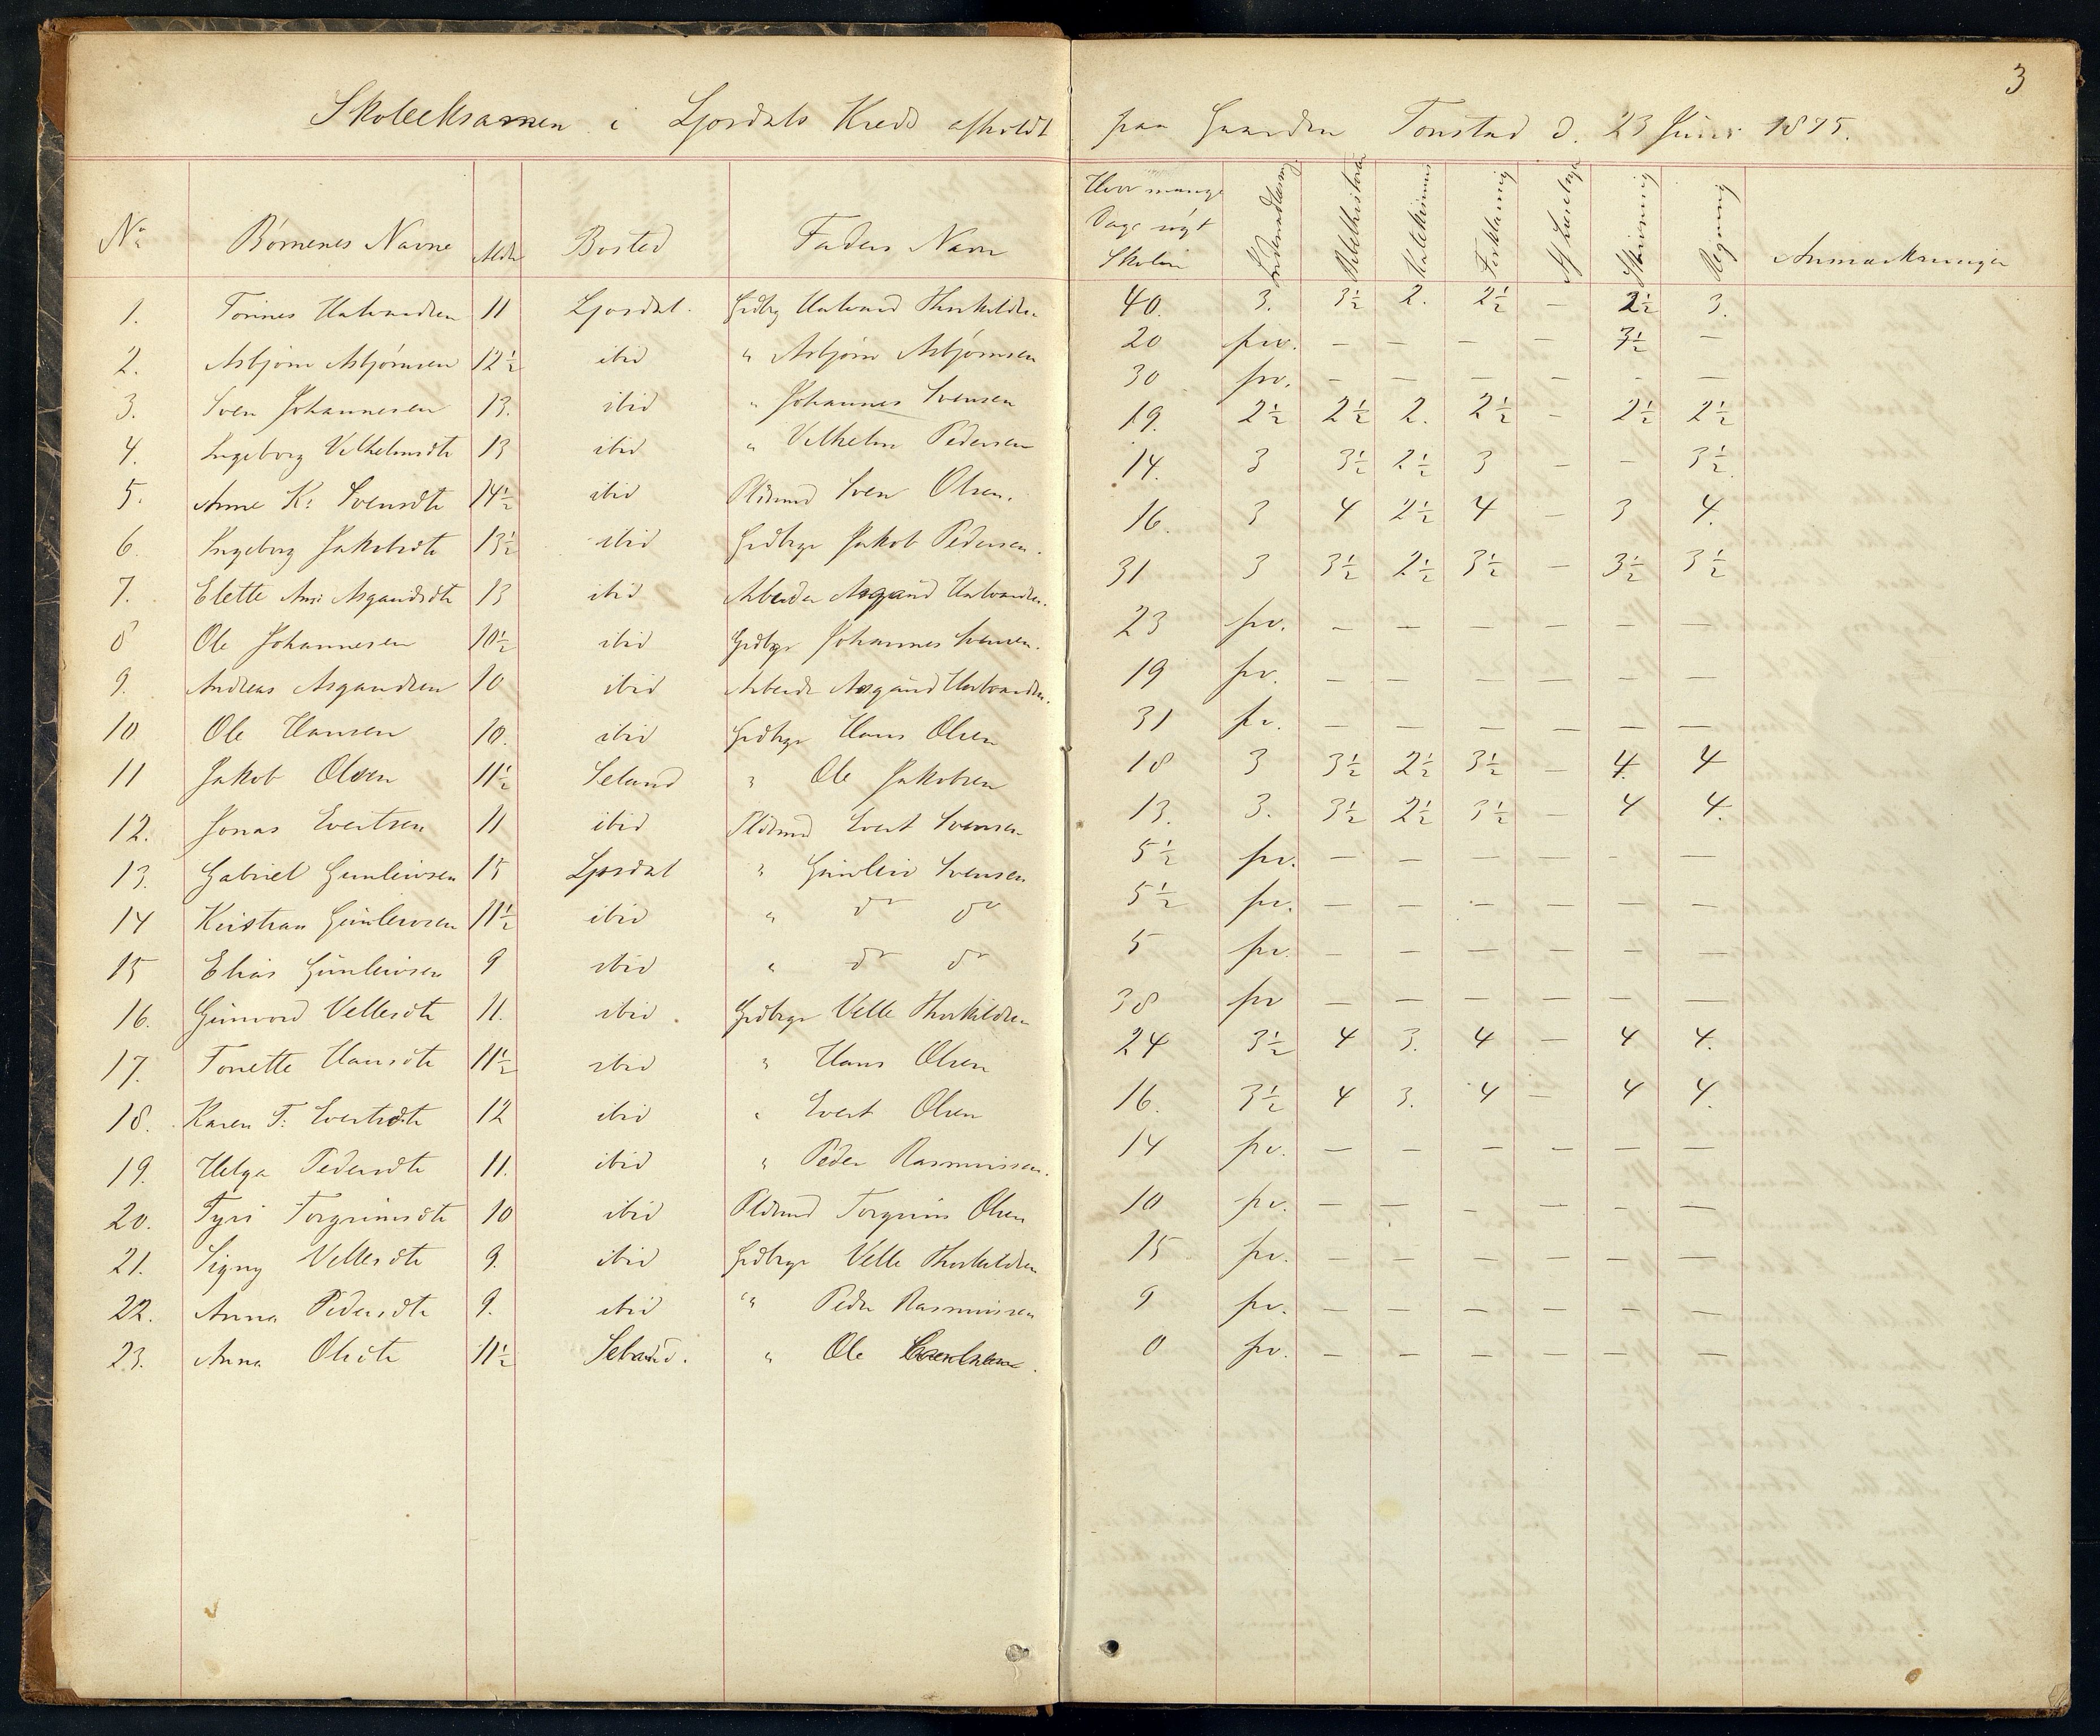 3
Skoleeksamen i Ljosdals Kreds afholdt paa Gaarden Tonstad d. 23 Juni 1875.
No Børnenes Navne Alder Bosted Faders Navn Hvor mange Dage søgt Skolen Indenadlæsning Bibelhistorie Katekismus Forklaring Af Læsebogen Skrivning Regning Anmærkninger
1. Tønnes Halvardsen 11 Ljosdal. Grdbrg Halvard Thorkildsen 40. 3. 3½ 2. 2½ — 2½ 3.
2. Asbjørn Asbjørnsen 12½ ibid " Asbjørn Asbjørnsen 20 prv. — — — — 3½ —
3. Sven Johannesen 13. ibid " Johannes Svensen 30 prv. — — — — - —
4. Ingeborg Vilhelmsdtr 13 ibid " Vilhelm Pedersen 19. 2½ 2½ 2. 2½ - 2½ 2½
5. Anne K: Svensdtr 14½ ibid Pldsmd Sven Olsen. 14. 3 3½ 2½ 3 — — 3½
6. Ingeborg Jakobsdtr 13½ ibid Grdbrgr Jakob Pedersen. 16. 3 4 2½ 4 — 3 4.
7. Elette Ams: Asgaudsdtr 13 ibid Arbeider Asgaud Halvardsen. 31 3 3½ 2½ 3½ — 3½ 3½
8 Ole Johannesen 10½ ibid Grdbrgr Johannes Svensen. 23 prv. — — — — — —
9. Andreas Asgaudsen 10 ibid Arbeidr Asgaud Halvardsen. 19 prv. — — — — — —
10 Ole Hansen 10. ibid Grdbrgr Hans Olsen 31 pr. — — — — — —
11 Jakob Olsen 11½ Seland " Ole Jakobsen 18 3 3½ 2½ 3½ — 4. 4
12. Jonas Evertsen 11 ibid Pldsmd Evert Svensen 13. 3. 3½ 2½ 3½ — 4 4.
13. Gabriel Gunleivsen 15 Ljosdal " Gunleiv Svensen 5½ prv. — — — — - —
14 Kristian Gunleivsen 11½ ibid " do do 5½ prv. — — - — — —
15 Elias Gunleivsen 9 ibid " do do 5 prv. — — — — — —
16. Gunvord Vellesdtr 11. ibid. Grdbrgr Velle Thorkildsen 38 prv — — — — — —
17. Tonette Hansdtr 11½ ibid " Hans Olsen 24 3½ 4 3. 4 — 4 4.
18. Karen T: Evertsdtr 12 ibid " Evert Olsen 16. 3½ 4 3. 4 — 4 4.
19. Helga Pedersdtr 11. ibid " Peder Rasmussen. 14 prv. — — — — — —
20. Tyri Torgrimsdtr 10 ibid Pldsmd Torgrim Olsen 10 prv. — — — — - —
21. Signy Vellesdtr 9. ibid Grdbrgr Velle Thorkildsen 15 prv. — — — — — —
22. Anna Pedersdtr 9. ibid " Peder Rasmussen 9 prv. — — — — — —
23. Anna Olsdtr 11½ Seland. " Ole 0 prv. — — — — — —